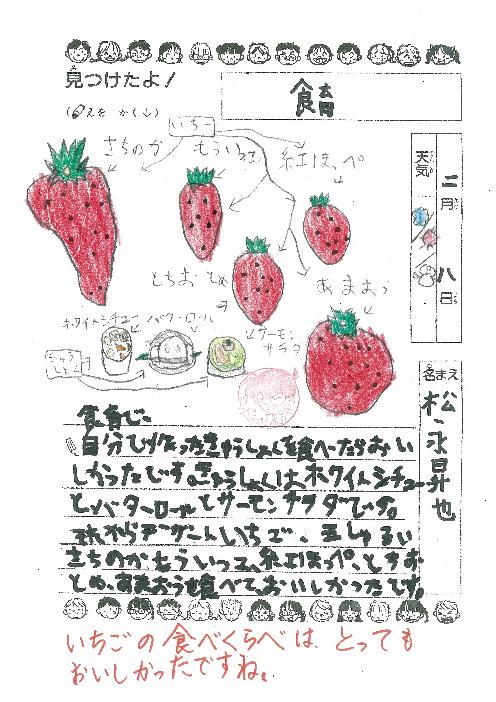 見つけたよ！
食育
(えをかく↓)
いちご
さちのか
もういっこ
紅ほっぺ
とちおとめ
あまおう
ホワイトシチュー
バターロール
サーモン
サラダ
天気
二月八日
名まえ
松永昇也
食育で、
自分で作ったきゅうしょくを食べたらおい
しかったです。きゅうしょくは、ホワイトシチュー
とバターロールとサーモンサラダです。
それからデザートいちごで、五しゅるい
さちのかもういっこ、紅ほっぺ、とちお
とめ、あまおうを食べて、おいしかったです。
いちごの食べくらべは、とっても
おいしかったですね。